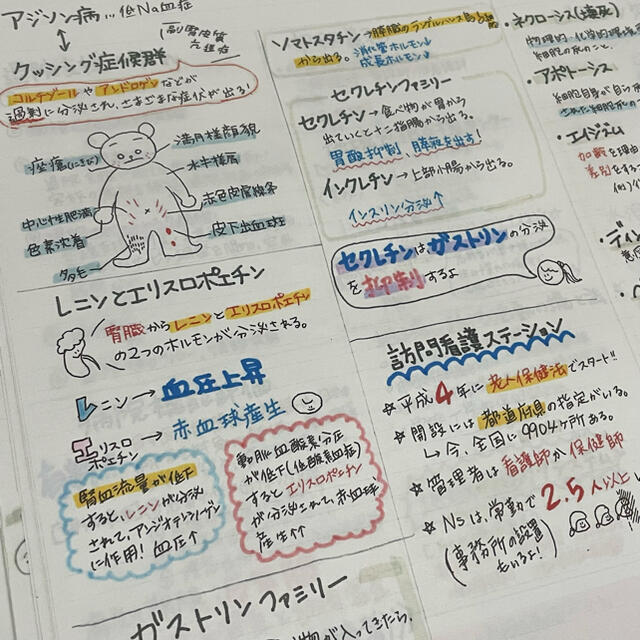 アジソン病…低Na血症
クッシング症候群
コルチゾールやアンドロゲンなどが
過剰に分泌され、さまざまな症状が出る!
痤瘡(にきび)
満月様顔貌
水牛様肩
中心性肥満
赤色皮膚線条
色素沈着
皮下出血斑
多毛
レニンとエリスロポエチン
腎臓からレニンとエリスロポエチン
の2つのホルモンが分泌される。
レニン→血圧上昇
エリスロポエチン→赤血球産生
腎血流量が低下
すると、レニンが分泌
されて、アンジオテンシノーゲン
に作用!血圧↑
動脈血酸素分圧
が低下(低酸素血症)
するとエリスロポエチン
が分泌されて、赤血球
産生↑
ガストリンファミリー
が入ってきたら、
ソマトスタチン→膵臓のランゲルハンス島
から出る。
消化管ホルモン↓
成長ホルモン↓
セクレチンファミリー
セクレチン→食べ物が胃から
出ていくと十二指腸から出る。
胃酸抑制、膵液を出す!
インクレチン→上部小腸から出る。
インスリン分泌↑
セクレチンはガストリンの分泌
を抑制するよ
訪問看護ステーション
☆平成4年に老人保健法でスタート!!
☆開設には都道府県の指定がいる。
↳今、全国に9904ヶ所ある。
☆管理者は看護師か保健師
☆Nsは、常勤で2.5人以上
(事務所の設置
もいるよ!)
・ネクローシス(壊死)
・アポトーシス
・エイジズム